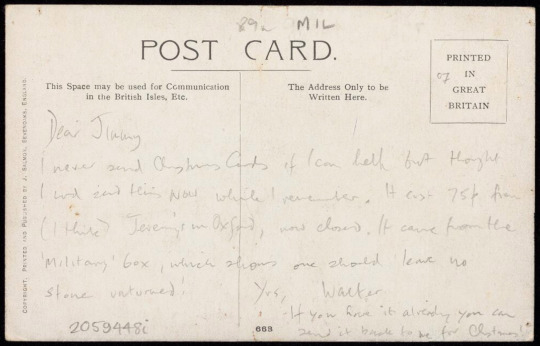 89a MIL
POST CARD.
PRINTED
IN
GREAT
BRITAIN
07
This Space may be used for Communication
in the British Isles, Etc.
The Address Only to be
Written Here.
Dear Jimmy
I never send Christmas Cards if I can help but thought
I wd send this now while I remember. It cost 75p from
(I think) in Oxford, now closed. It came from the
'Military' box, which shows one should leave no
stone unturned! Yrs, Walter
- If you have it already you can
send it back to me for Christmas!
2059448i
663
COPYRIGHT. PRINTED AND PUBLISHED BY J. SALMON, SEVENOAKS, ENGLAND.